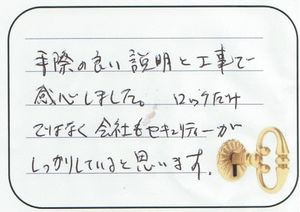 手際の良い説明と工事で
感心しました。ロックだけ
ではなく会社もセキュリティーが
しっかりしていると思います。